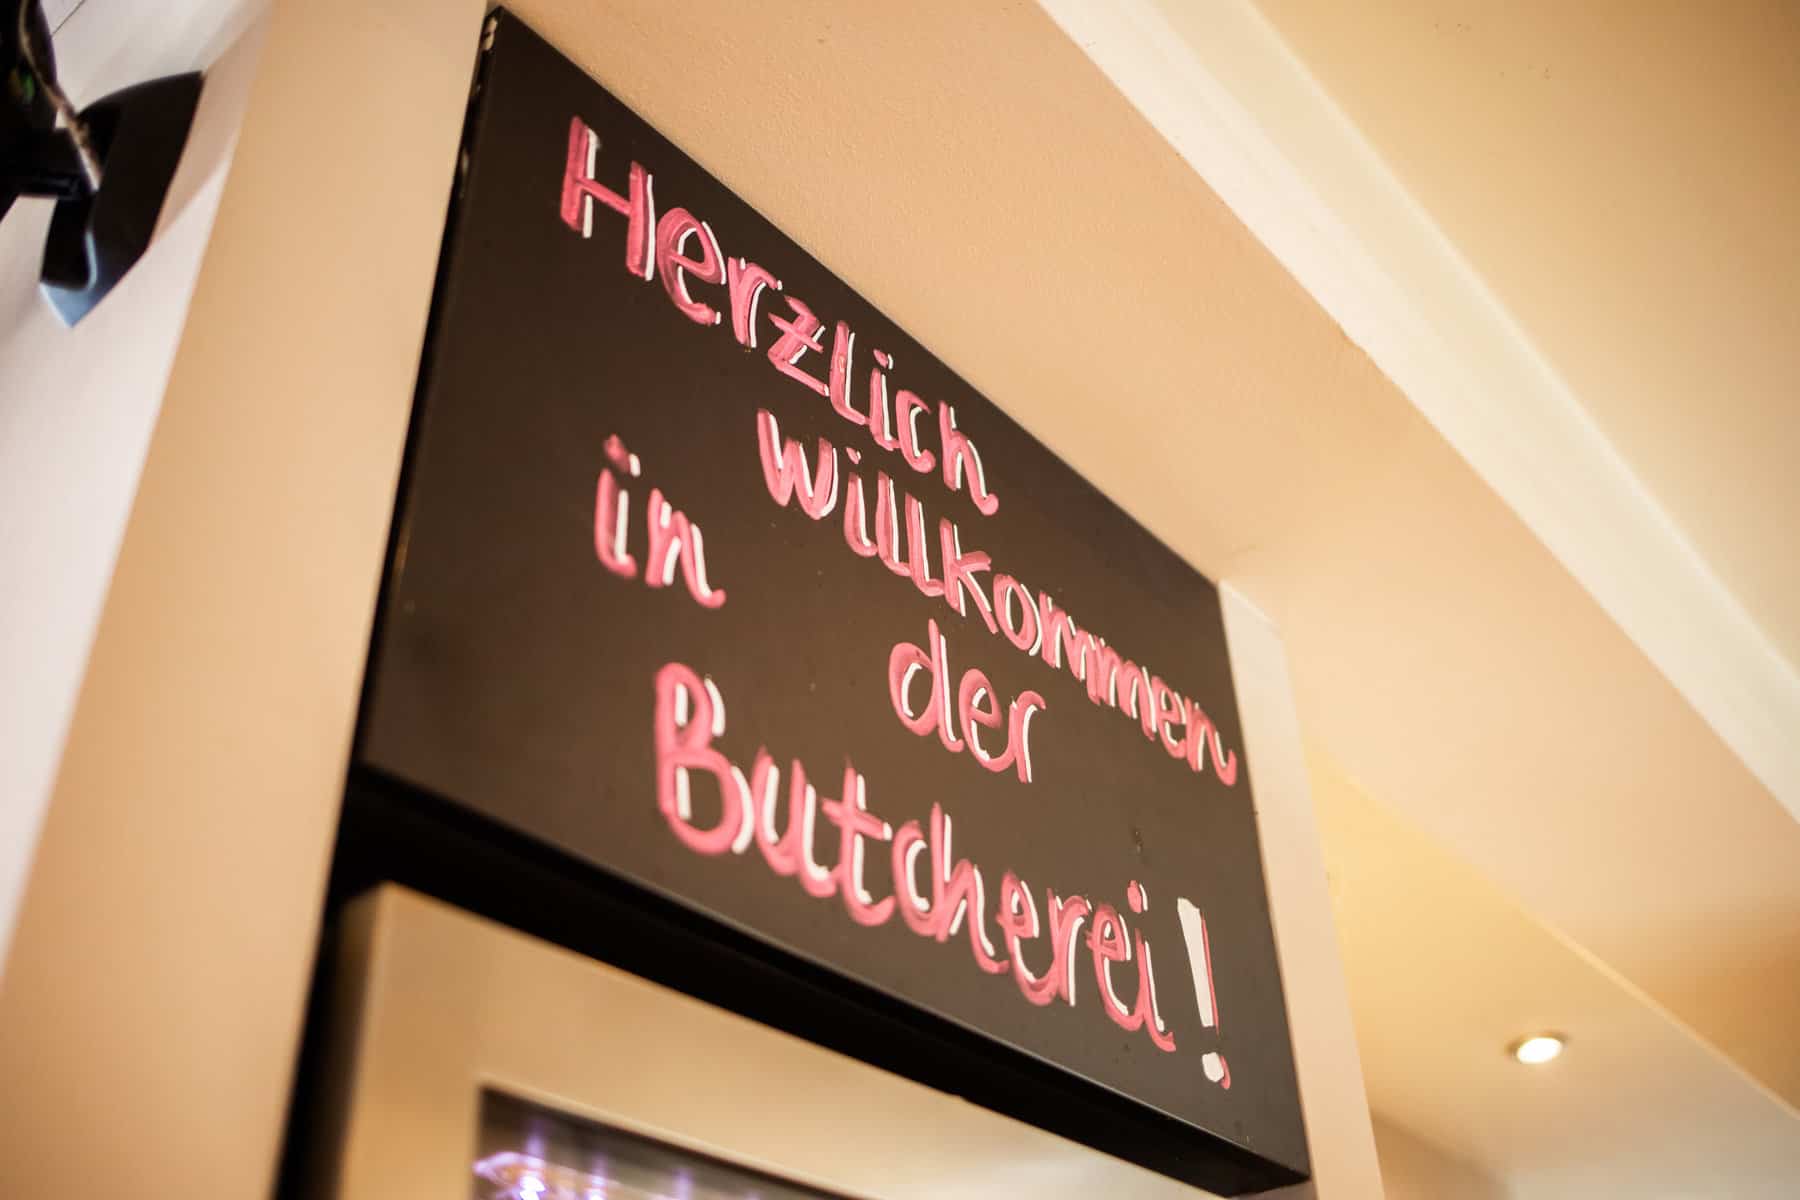 Herzlich
willkommen
in der
Butcherei!